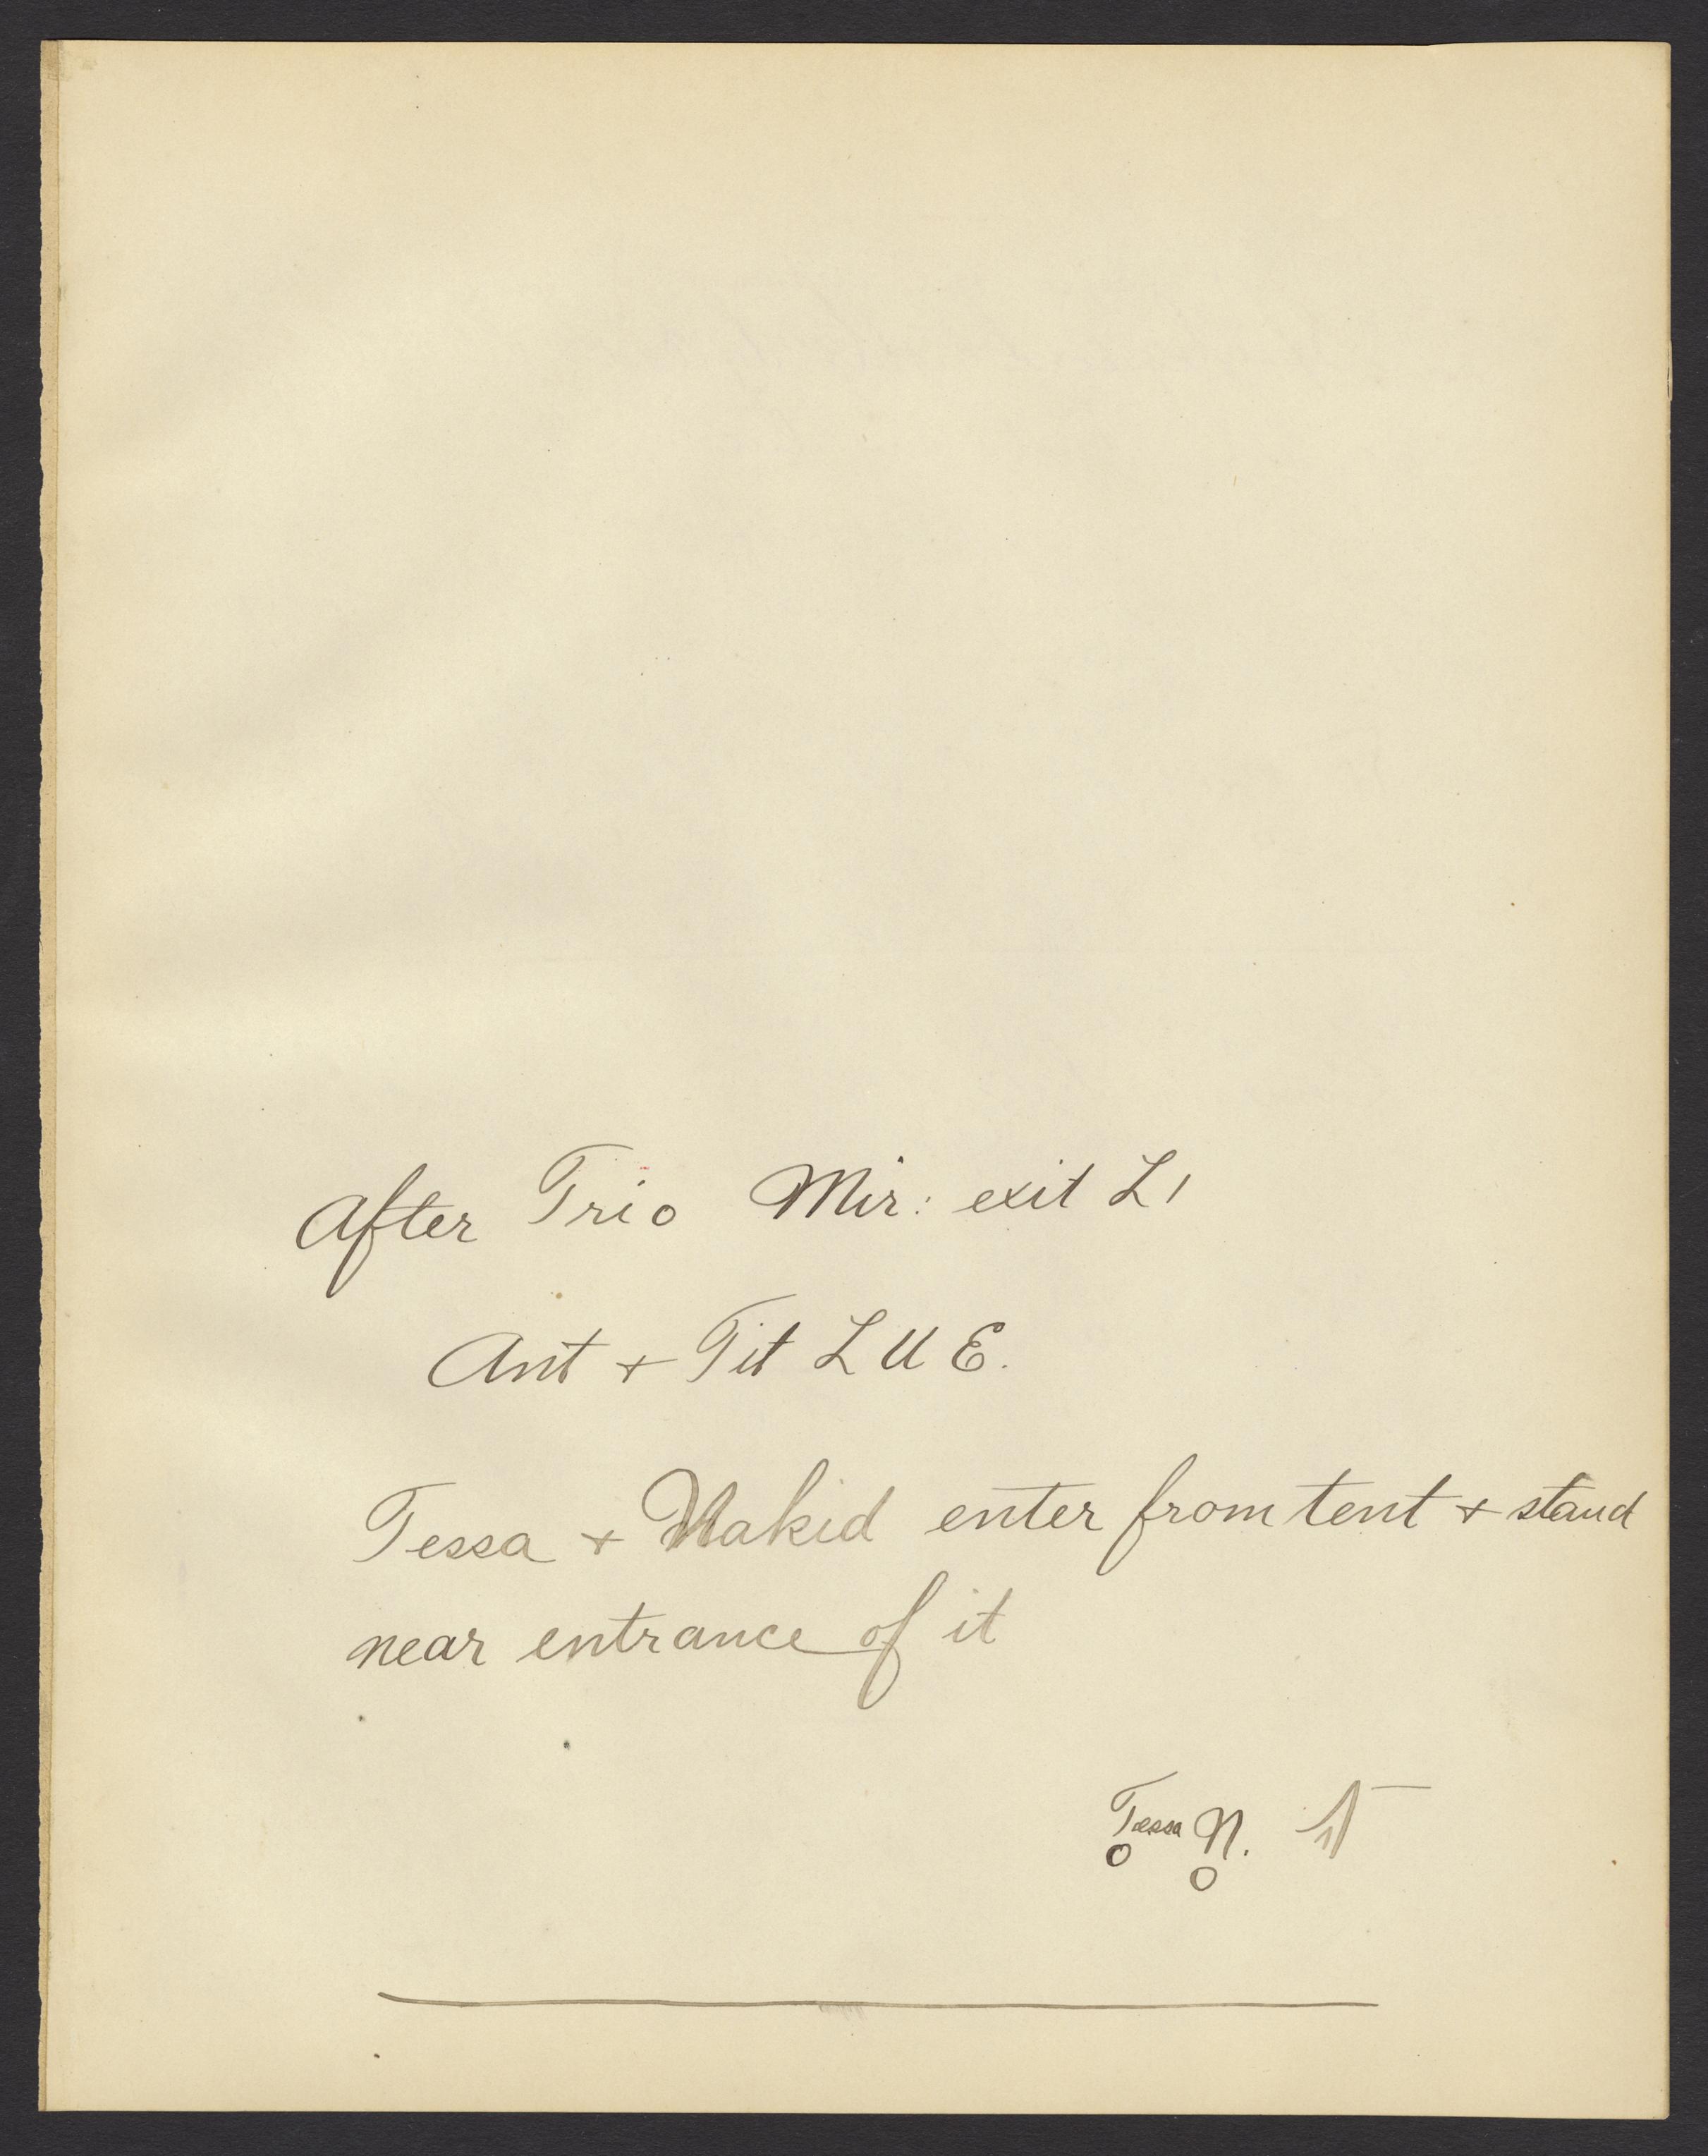 After Trio Mir: exit L1
Ant + Tit L U E.
Tessa + Nakid enter from tent + stand
near entrance of it
Tessa N.
o
o